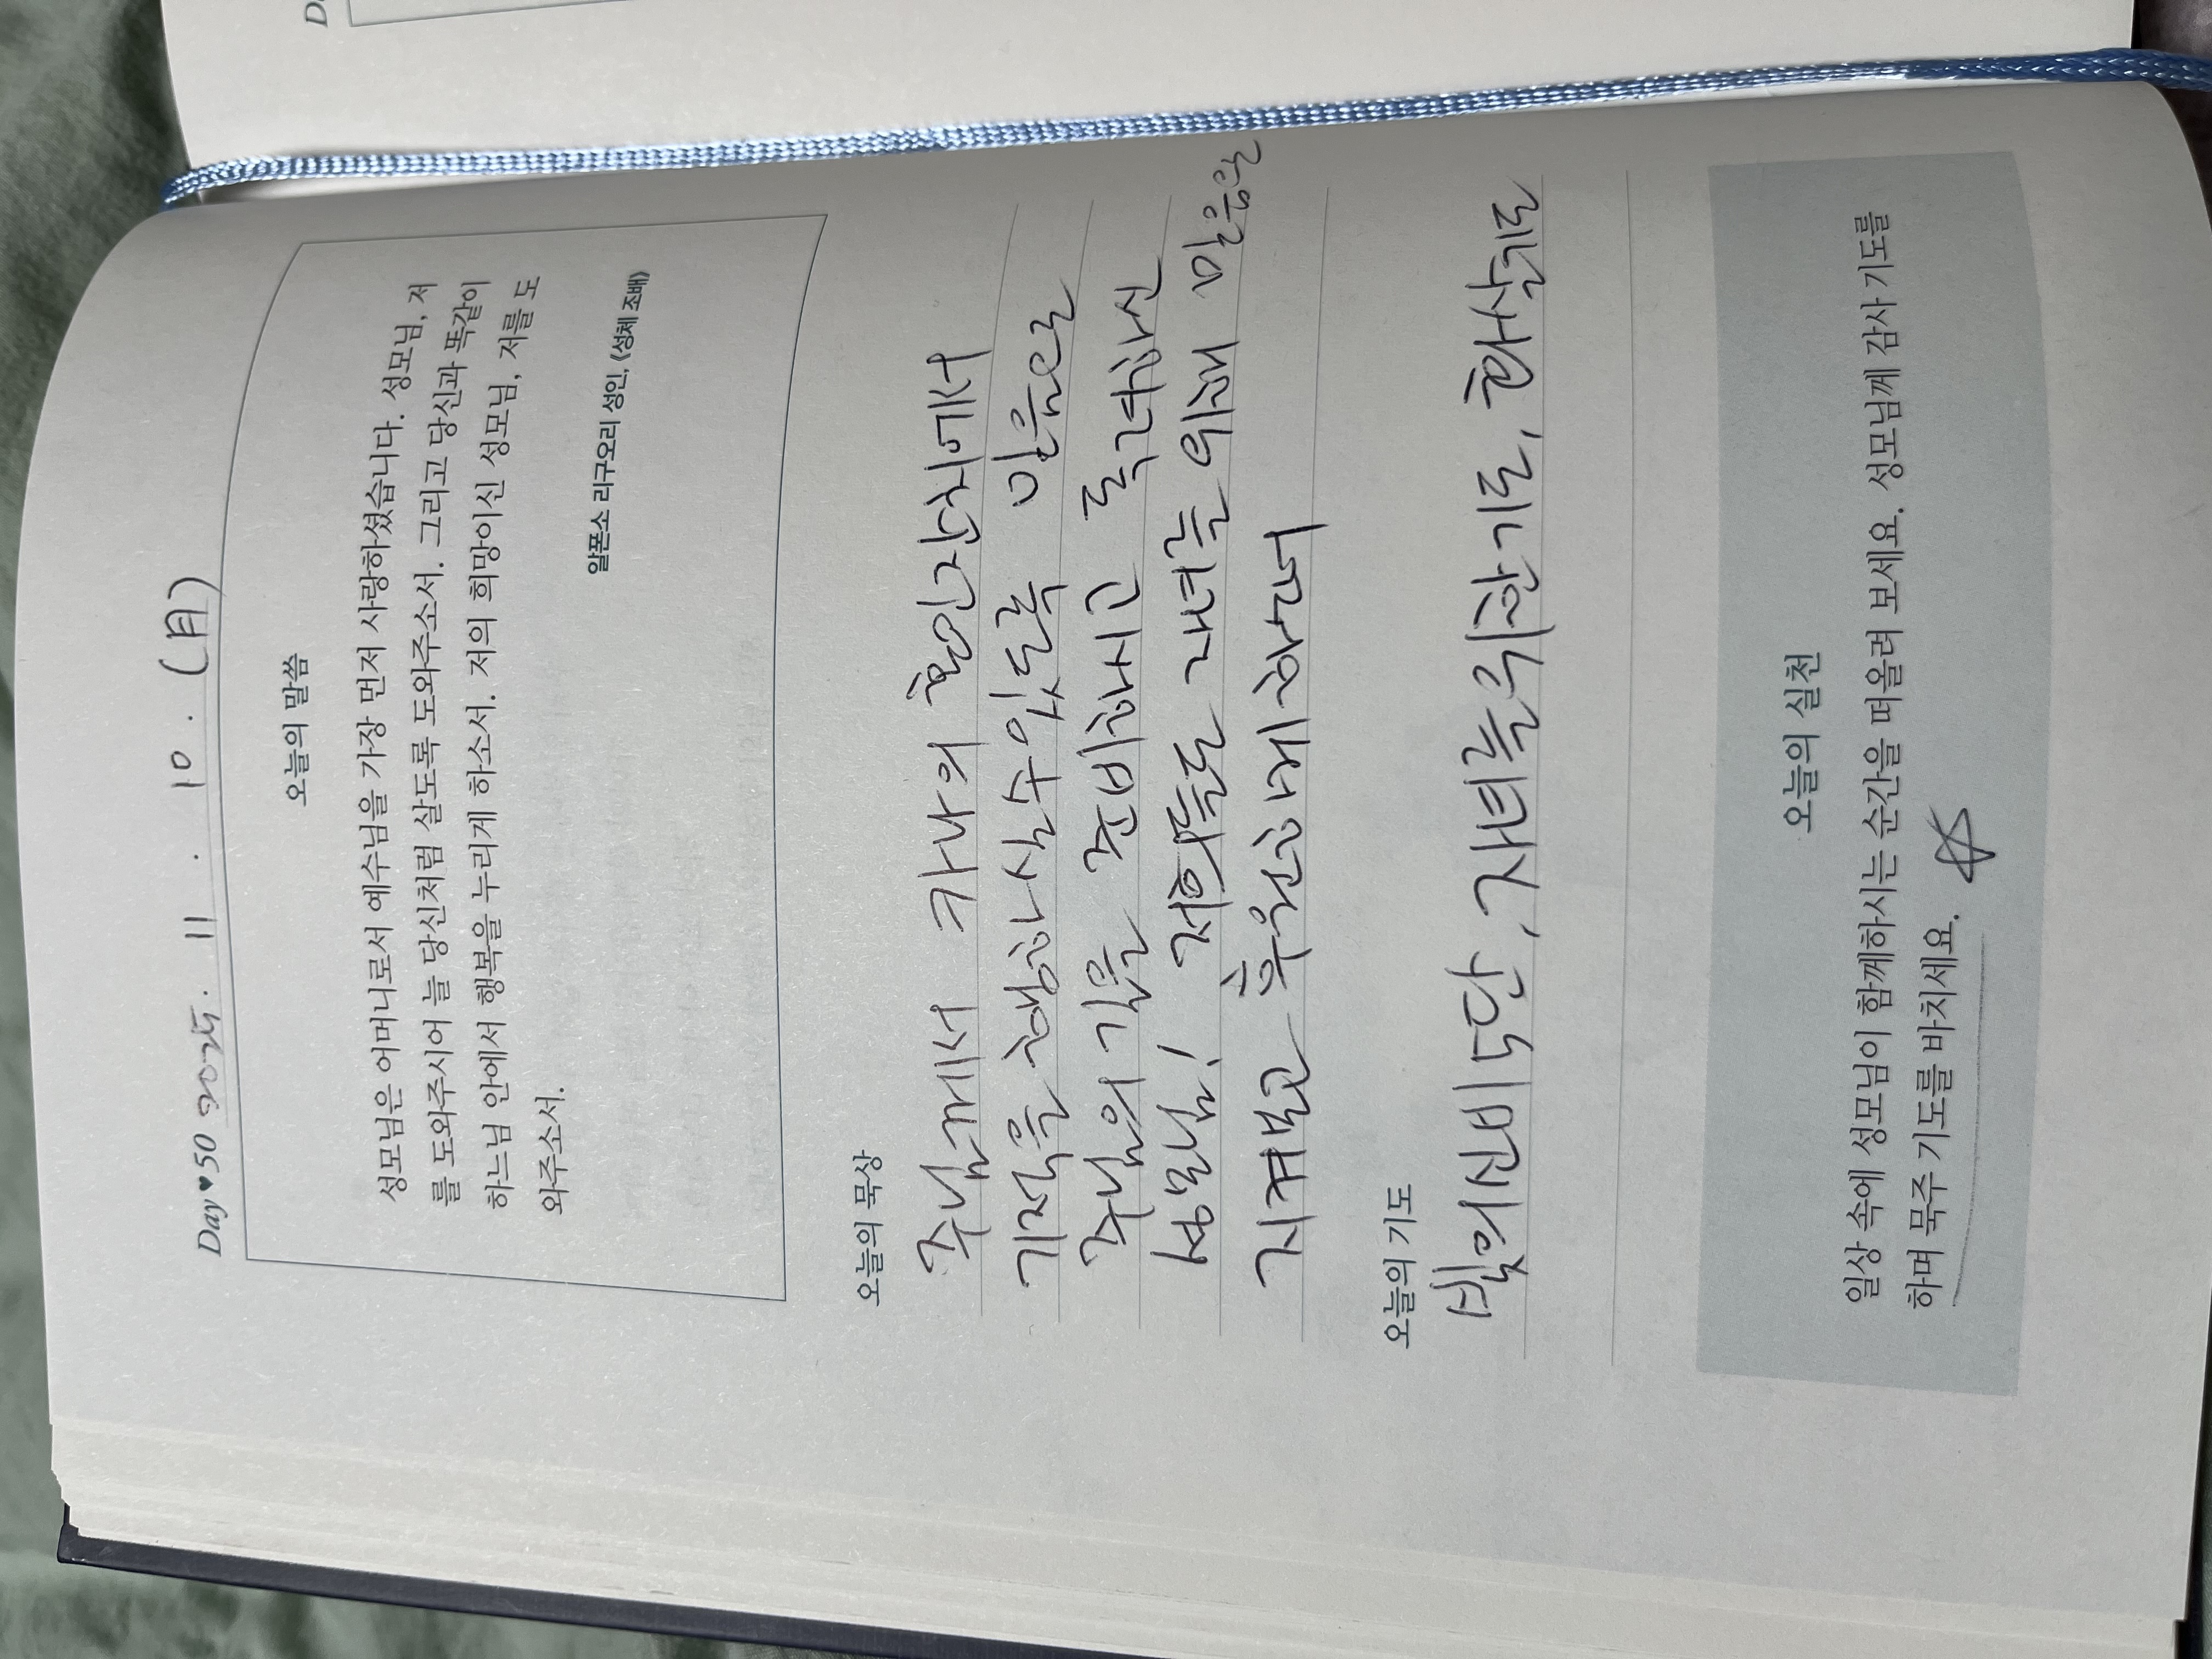 Day♥50 2025. 11. 10. (月)
오늘의 말씀
성모님은 어머니로서 예수님을 가장 먼저 사랑하셨습니다. 성모님, 저
를 도와주시어 늘 당신처럼 살도록 도와주소서. 그리고 당신과 똑같이
하느님 안에서 행복을 누리게 하소서. 저의 희망이신 성모님, 저를 도
와주소서.
알폰소 리구오리 성인, 《성체 조배》
오늘의 묵상
주님께서 카나의 혼인잔치에서
기적을 행하실수있도록 믿음으로
주님의 길을 준비하시고 독려하신
성모님! 저희들도 자녀를 위해 마음을
지켜보고 후원하게 하소서
오늘의 기도
빛의신비 5단, 자녀를위한기도, 화살기도
오늘의 실천
일상 속에 성모님이 함께하시는 순간을 떠올려 보세요. 성모님께 감사 기도를
하며 묵주 기도를 바치세요.